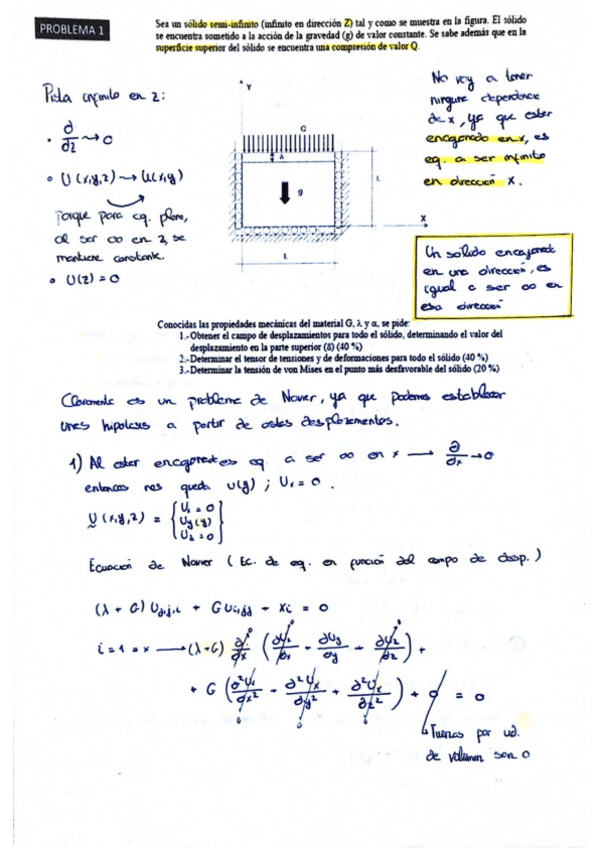 PROBLEMA 1
Sea un sólido semi-infinito (infinito en dirección Z) tal y como se muestra en la figura. El sólido
se encuentra sometido a la acción de la gravedad (g) de valor constante. Se sabe además que en la
superficie superior del sólido se encuentra una compresión de valor Q.
Pista infinito en z:
• ∂/∂z → 0
• U(x,y,z) → U(x,y)
Porque para eq. plano,
al ser ∞ en z, se
mantiene constante.
• U(z) = 0
Y
Q
δ
g
L
X
L
No voy a tener
ninguna dependencia
de x, ya que estar
encajonado en x, es
eq. a ser infinito
en dirección x.
Un sólido encajonado
en una dirección, es
igual a ser ∞ en
esa dirección
Conocidas las propiedades mecánicas del material G, λ y α, se pide:
1.-Obtener el campo de desplazamientos para todo el sólido, determinando el valor del
desplazamiento en la parte superior (δ) (40 %)
2.-Determinar el tensor de tensiones y de deformaciones para todo el sólido (40 %)
3.-Determinar la tensión de von Mises en el punto más desfavorable del sólido (20 %)
Claramente es un problema de Navier, ya que podemos establecer
unas hipótesis a partir de estos desplazamientos.
1) Al estar encajonado es eq. a ser ∞ en x → ∂/∂x → 0
entonces nos queda U(y) ; Ux = 0.
U(x,y,z) = { Ux = 0
Uy(y)
Uz = 0 }
Ecuación de Navier (Ec. de eq. en función del campo de desp.)
(λ + G) Uj,j,i + G Ui,jj + Xi = 0
i = 1 = x → (λ+G) ∂/∂x (∂Ux/∂x + ∂Uy/∂y + ∂Uz/∂z) +
+ G (∂²Ux/∂x² + ∂²Ux/∂y² + ∂²Ux/∂z²) + 0 = 0
Fuerzas por ud.
de volumen son 0